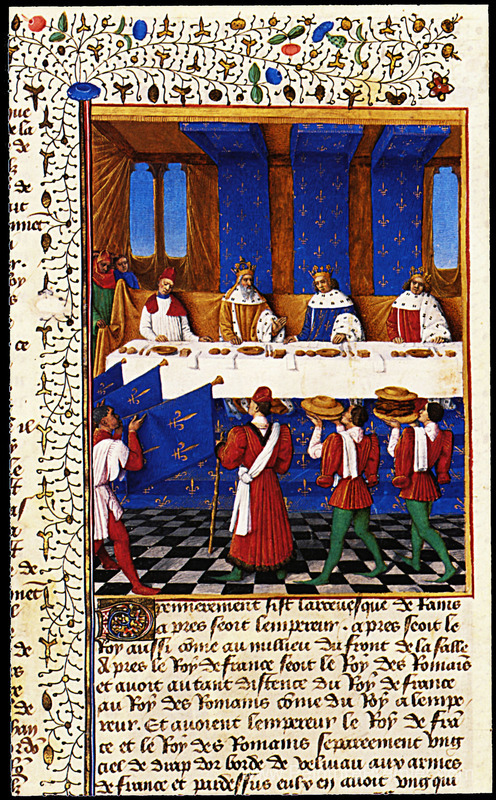 Premierement sist larceuesque de Rains
apres seoit lempereur . apres seoit le
Roy aussi come au millieu du front de la salle
Apres le Roy de france seoit le Roy des Romais
et auoit autant distence du Roy de france
au Roy des Romanis come du Roy a lempe
reur. Et auoient lempereur le Roy de fra
ce et le Roy des Romanis separeement vng
ciel de drap dor borde de veluiau aux armes
de france et pardessus eulx en auoit vng qui